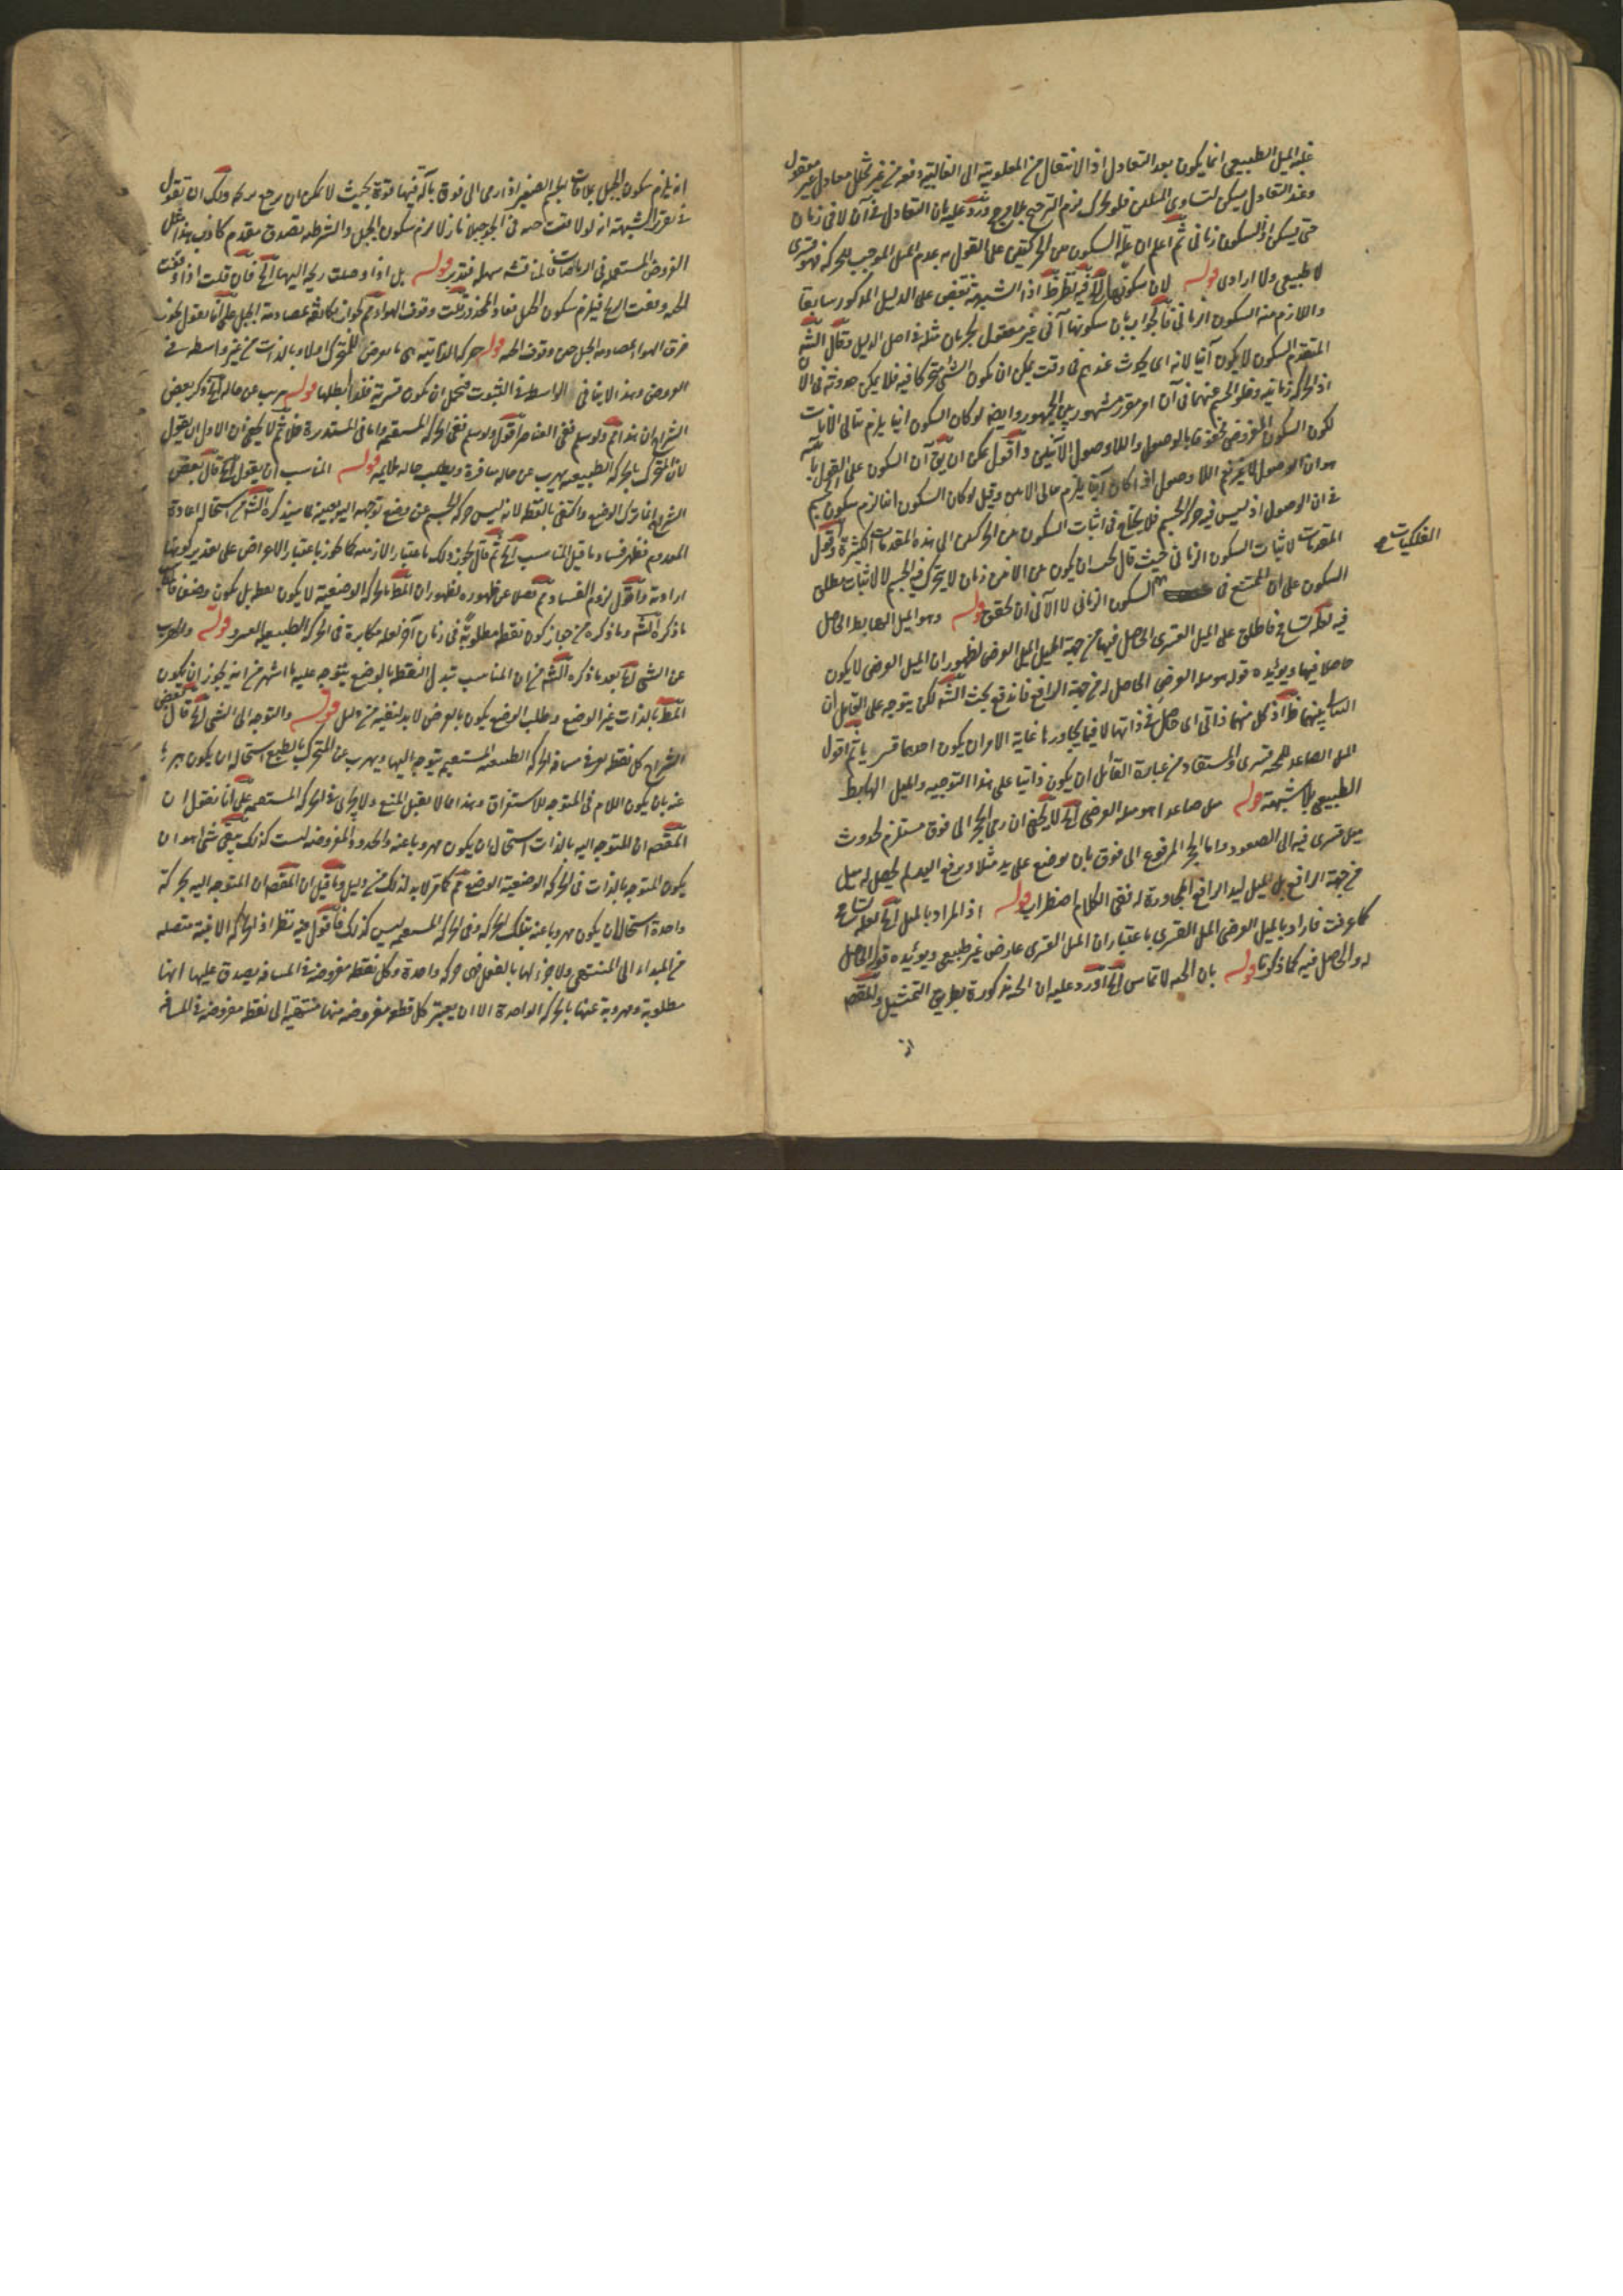 غلبة الميل الطبيعي انما يكون بعد التعادل اذ الانتقال من المغلوبية الى الغالبية دفعة من غير تخلل معادل غير معقول
وعند التعادل يسكن لتساوى الميلين فلو تحرك لزم الترجيح بلا مرجح ورد عليه بان التعادل فى آن لا فى زمان
حتى يسكن اذ السكون زمانى ثم اعلم ان علة السكون بين الحركتين على القول به عدم الميل الموجب للحركة فهو قسرى
لا طبيعى ولا ارادى قوله لان سكونها الخ فيه نظر اذ الشبهة نقض على الدليل المذكور سابقا
واللازم منه السكون الزمانى فالجواب بان سكونها آنى غير معقول لجريان مثله فى اصل الدليل وقال الش
المتقدم السكون لا يكون آنيا لانه اى يحدث عندهم فى وقت يمكن ان يكون الشئ متحركا فيه فلا يمكن حدوثه فى الآن
اذ الحركة زمانية وخلو الجسم عنهما فى آن امر مقرر مشهور بين الجمهور وايضا لو كان السكون آنيا يلزم تتالى الآنات
لكون السكون المفروض محفوفا بالوصول واللاوصول الآنيين واقول يمكن ان يق آن السكون على القول بآنيته
هو ان الوصول لا غير ثم اللا وصول اذا كان آنيا يلزم تتالى الآنين وقيل لو كان السكون آنيا لزم سكون الجسم
فى آن الوصول اذ ليس فيه حركة الجسم فلا يحتاج فى اثبات السكون بين الحركتين الى هذه المقدمات الكثيرة واقول
المقدمات لاثبات السكون الزمانى حيث قال يجب ان يكون بين الآنين زمان لا يتحرك فيه الجسم لا لاثبات مطلق
الفلكيات صح
السكون على ان الممتنع فى السكون الزمانى لا الآنى ان تحقق قوله وهو الميل الهابط الحاصل
فيه لعله تسامح فاطلق على الميل القسرى الحاصل فيها من جهة الميل الميل العرضى لظهور ان الميل العرضى لا يكون
حاصلا فيها ويؤيده قوله هو ميله العرضى الحاصل له من جهة الدافع فاندفع بحث الش لكن يتوجه على القائل ان
التنافى بينهما ظ اذ كل منهما ذاتى اى حاصل فى ذاتها لا فيما يجاورها غاية الامر ان يكون احدهما قسريا ثم اقول
الميل الصاعد للحبة قسرى والمستفاد من عبارة القائل ان يكون ذاتيا على هذا التوجيه والميل الهابط
الطبيعى بلا شبهة قوله ميل صاعد اهو ميله العرضى الخ لا يخفى ان رمى الحجر الى فوق مستلزم لحدوث
ميل قسرى فيه الى الصعود واما الحجر المرفوع الى فوق بان يوضع على يد مثلا ويرفع اليد لم يحصل له ميل
من جهة الرافع بل الميل ليد الرافع المجاورة له ففى الكلام اضطراب قوله اذ المراد بالميل الخ لعله تسامح
كما عرفت فاراد بالميل العرضى الميل القسرى باعتبار ان الميل القسرى عارض غير طبيعى ويؤيده قوله الحاصل
له والحاصل فيه كما ذكرنا قوله بان الحبة لا تماس الخ اورد عليه ان الحبة مذكورة بطريق التمثيل والمقص
انه يلزم سكون الجبل بملاقات الجسم الصغير اذا رمى الى فوق بآلة فيها قوة بحيث لا يمكن ان يرجع بريحه ولك ان تقول
فى تقرير الشبهة انه لو لاقت حبة فى الجو جبلا نازلا لزم سكون الجبل والشرطية تصدق بمقدم كاذب هذا مثل
الفروض المستعملة فى الرياضيات فالمناقشة سهلة فتدبر قوله بل اذا وصلت ريحه اليها الخ فان قلت اذا وقفت
الحبة وقفت الريح فيلزم سكون الجبل فعاد المحذور قلت وقوف الهواء ثم لجواز تكاثفه بمصادمة الجبل على انا نقول يجوز
خرق الهواء لمصادمة الجبل حين وقوف الحبة قوله حركة الذاتية هى ما يعرض للمتحرك اولا وبالذات من غير واسطة فى
العروض وهذا لا ينافى الواسطة فى الثبوت فيحتمل ان يكون قسرية فلذا ابطلها قوله يهرب عن حالة الخ ذكر بعض
الشراح ان هذا ثم ولو سلم ففى العناصر اقول ولو سلم ففى الحركة المستقيمة واما فى المستديرة فلا ثم لا يخفى ان الاولى ان يقول
لان المتحرك بالحركة الطبيعية يهرب عن حالة منافرة ويطلب حالة ملايمة قوله المناسب ان يقول الخ قال بعض
الشراح انما ترك الوضع واكتفى بالنقط لانه ليس حركة الجسم عن وضع توجهه اليه بعينه لما سيذكره الش من استحالة اعادة
المعدوم فظهر فساد ما قيل المناسب الخ ثم قال يجوز ذلك باعتبار الازمنة كما يجوز باعتبار الاعراض على تقدير كونها
ارادية واقول لزوم الفساد ثم فضلا عن ظهوره لظهور ان المط بالحركة الوضعية لا يكون نقطة بل يكون وضعا فان
ما ذكره الش وما ذكره من جواز كون نقطة مطلوبة فى زمان آخر لعله مكابرة فى الحركة الطبيعية الصرف قوله والهرب
عن الشئ الخ بعد ما ذكره الش من ان المناسب تبدل النقطة بالوضع يتوجه عليه ما اشتهر من انه يجوز ان يكون
المط بالذات غير الوضع وطلب الوضع يكون بالعرض لا بد لنفيه من دليل قوله والتوجه الى الشئ الخ قال بعض
الشراح كل نقطة تعرض فى مسافة الحركة الطبيعية المستقيمة يتوجه اليها ويهرب عن المتحرك بالطبع استحالة ان يكون مهروبا
عنه بان يكون اللام فى المتوجه للاستغراق وهذا مما لا يقبل المنع ولا يجرى فى الحركة المستقيمة على انا نقول ان
المقص ان المتوجه اليه بالذات استحال ان يكون مهروبا عنه والحدود المفروضة ليست كذلك بقى شئ هو ان
يكون المتوجه بالذات فى الحركة الوضعية الوضع ثم كما مر لا بد لذلك من دليل وما قيل ان المقص ان المتوجه اليه بحركة
واحدة استحال ان يكون مهروبا عنه بتلك الحركة وفى الحركة المستقيمة ليس كذلك فاقول فيه نظر اذ الحركة الاينية متصلة
من المبدأ الى المنتهى ولا جزء لها بالفعل فهى حركة واحدة وكل نقطة مفروضة فى المسافة يصدق عليها انها
مطلوبة ومهروبة عنها بالحركة الواحدة الا ان يعتبر كل قطعة مفروضة منها منتهية الى نقطة مفروضة فى المسافة